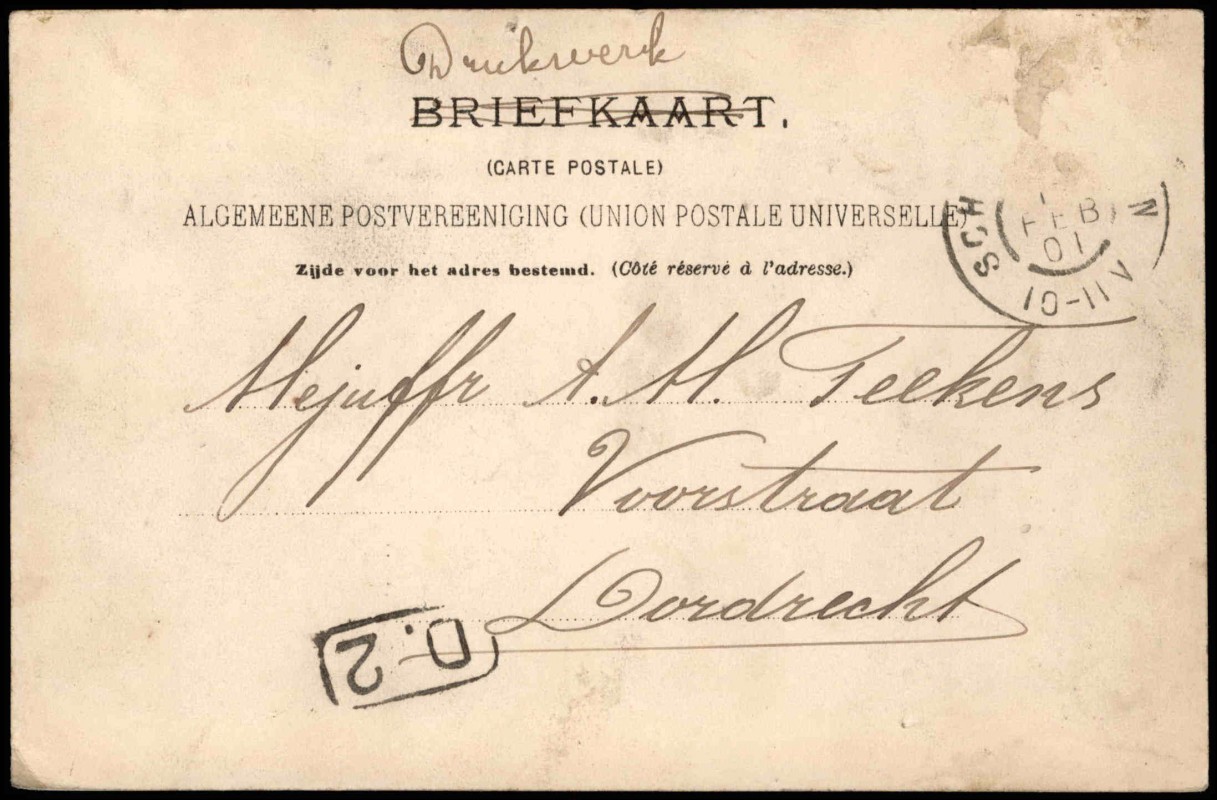 Drukswerk
BRIEFKAART.
(CARTE POSTALE)
ALGEMEENE POSTVEREENIGING (UNION POSTALE UNIVERSELLE)
Zijde voor het adres bestemd. (Côté réservé à l'adresse.)
SCH N
FEB
01
10-11 V
Mejuffr A. M. Teekens
Voorstraat
Dordrecht
D.2